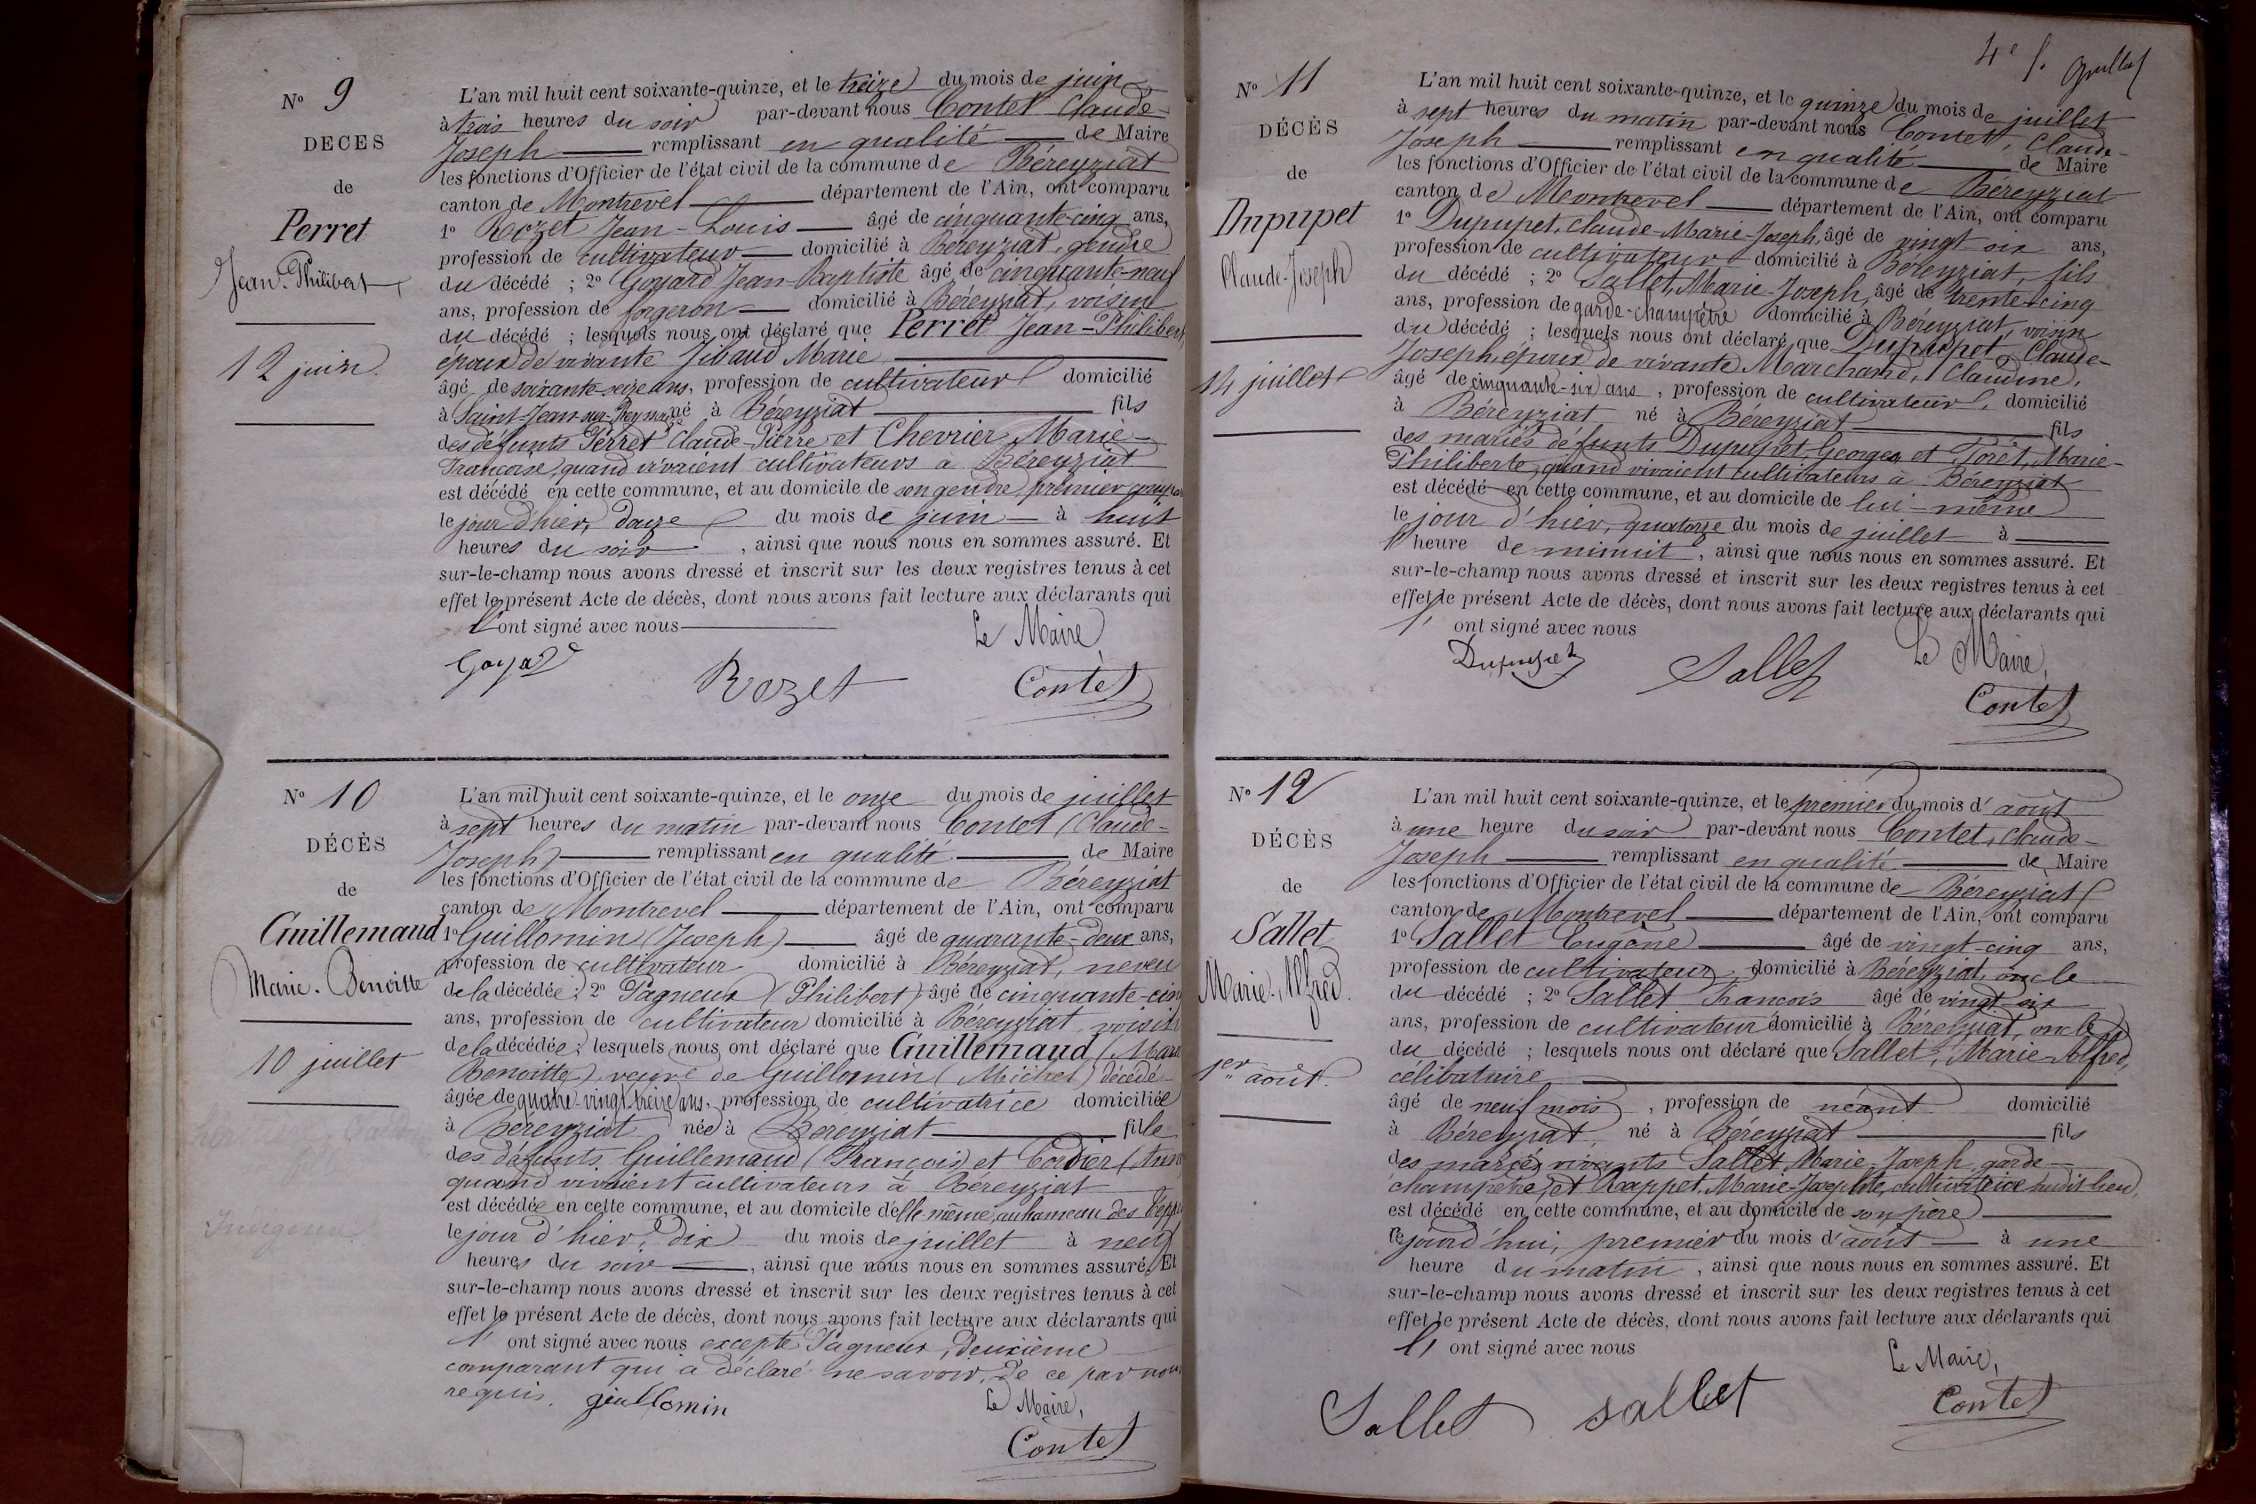 N° 9
DECES
de
Perret
Jean-Philibert
12 juin.
L'an mil huit cent soixante-quinze, et le treize du mois de juin
à trois heures du soir par-devant nous Contet Claude-
Joseph remplissant en qualité de Maire
les fonctions d'Officier de l'état civil de la commune de Béreyziat
canton de Montrevel département de l'Ain, ont comparu
1° Rozet Jean-Louis âgé de cinquante-cinq ans,
profession de cultivateur domicilié à Béreyziat, gendre
du décédé ; 2° Goyard Jean-Baptiste âgé de cinquante-neuf
ans, profession de forgeron domicilié à Béreyziat, voisin
du décédé ; lesquels nous ont déclaré que Perret Jean-Philibert
époux de vivante Marie
âgé de soixante-seize ans, profession de cultivateur domicilié
à Saint-Jean-sur-Reyssouze né à Béreyziat fils
des défunts Perret Claude-Pierre et Chevrier Marie-
Françoise, quand vivaient cultivateurs à Béreyziat
est décédé en cette commune, et au domicile de son gendre, premier
le jour d'hier, douze du mois de juin à huit
heures du soir, ainsi que nous nous en sommes assuré. Et
sur-le-champ nous avons dressé et inscrit sur les deux registres tenus à cet
effet le présent Acte de décès, dont nous avons fait lecture aux déclarants qui
l'ont signé avec nous
Le Maire,
Goyard Rozet Contet
N° 10
DÉCÈS
de
Guillemaud
Marie-Benoitte
10 juillet
L'an mil huit cent soixante-quinze, et le onze du mois de juillet
à sept heures du matin par-devant nous Contet (Claude-
Joseph) remplissant en qualité de Maire
les fonctions d'Officier de l'état civil de la commune de Béreyziat
canton de Montrevel département de l'Ain, ont comparu
1° Guillomin (Joseph) âgé de quarante-deux ans,
profession de cultivateur domicilié à Béreyziat, neveu
de la décédée ; 2° Pagneux (Philibert) âgé de cinquante-cinq
ans, profession de cultivateur domicilié à Béreyziat, voisin
de la décédée ; lesquels nous ont déclaré que Guillemaud (Marie
Benoitte), veuve de Guillomin (Michel) décédé
âgée de quatre-vingt-treize ans, profession de cultivatrice domiciliée
à Béreyziat née à Béreyziat fille
des défunts Guillemaud (François) et Cordier
quand vivaient cultivateurs à Béreyziat
est décédée en cette commune, et au domicile d'elle-même, au hameau des
le jour d'hier, dix du mois de juillet à neuf
heures du soir, ainsi que nous nous en sommes assuré. Et
sur-le-champ nous avons dressé et inscrit sur les deux registres tenus à cet
effet le présent Acte de décès, dont nous avons fait lecture aux déclarants qui
l'ont signé avec nous excepté Pagneux, deuxième
comparant qui a déclaré ne savoir, de ce par nous
requis. guillomin Le Maire,
Contet
4e f.
N° 11
DÉCÈS
de
Dupupet
Claude-Joseph
14 juillet
L'an mil huit cent soixante-quinze, et le quinze du mois de juillet
à sept heures du matin par-devant nous Contet, Claude-
Joseph remplissant en qualité de Maire
les fonctions d'Officier de l'état civil de la commune de Béreyziat
canton de Montrevel département de l'Ain, ont comparu
1° Dupupet, Claude-Marie-Joseph, âgé de vingt-six ans,
profession de cultivateur domicilié à Béreyziat, fils
du décédé ; 2° Sallet, Marie-Joseph, âgé de trente-cinq
ans, profession de garde-champêtre domicilié à Béreyziat, voisin
du décédé ; lesquels nous ont déclaré que Dupupet Claude-
Joseph époux de vivante Marchand, Claudine,
âgé de cinquante-six ans, profession de cultivateur, domicilié
à Béreyziat né à Béreyziat fils
des mariés défunts Dupupet, Georges et Poret, Marie-
Philiberte, quand vivaient cultivateurs à Béreyziat
est décédé en cette commune, et au domicile de lui-même
le jour d'hier, quatorze du mois de juillet à
heure de minuit, ainsi que nous nous en sommes assuré. Et
sur-le-champ nous avons dressé et inscrit sur les deux registres tenus à cet
effet le présent Acte de décès, dont nous avons fait lecture aux déclarants qui
l'ont signé avec nous
Le Maire,
Dupupet Sallet Contet
N° 12
DÉCÈS
de
Sallet
Marie-Alfred.
1er août.
L'an mil huit cent soixante-quinze, et le premier du mois d'août
à une heure du soir par-devant nous Contet, Claude-
Joseph remplissant en qualité de Maire
les fonctions d'Officier de l'état civil de la commune de Béreyziat
canton de Montrevel département de l'Ain, ont comparu
1° Sallet Eugène âgé de vingt-cinq ans,
profession de cultivateur, domicilié à Béreyziat, oncle
du décédé ; 2° Sallet François âgé de vingt-six
ans, profession de cultivateur domicilié à Béreyziat, oncle
du décédé ; lesquels nous ont déclaré que Sallet, Marie-Alfred,
célibataire
âgé de neuf mois, profession de néant domicilié
à Béreyziat, né à Béreyziat fils
des mariés vivants Sallet Marie-Joseph, garde-
champêtre, et Rappet, Marie-Josephte, cultivatrice audit lieu,
est décédé en cette commune, et au domicile de son père
cejourd'hui, premier du mois d'août à une
heure du matin, ainsi que nous nous en sommes assuré. Et
sur-le-champ nous avons dressé et inscrit sur les deux registres tenus à cet
effet le présent Acte de décès, dont nous avons fait lecture aux déclarants qui
l'ont signé avec nous
Le Maire,
Sallet sallet Contet